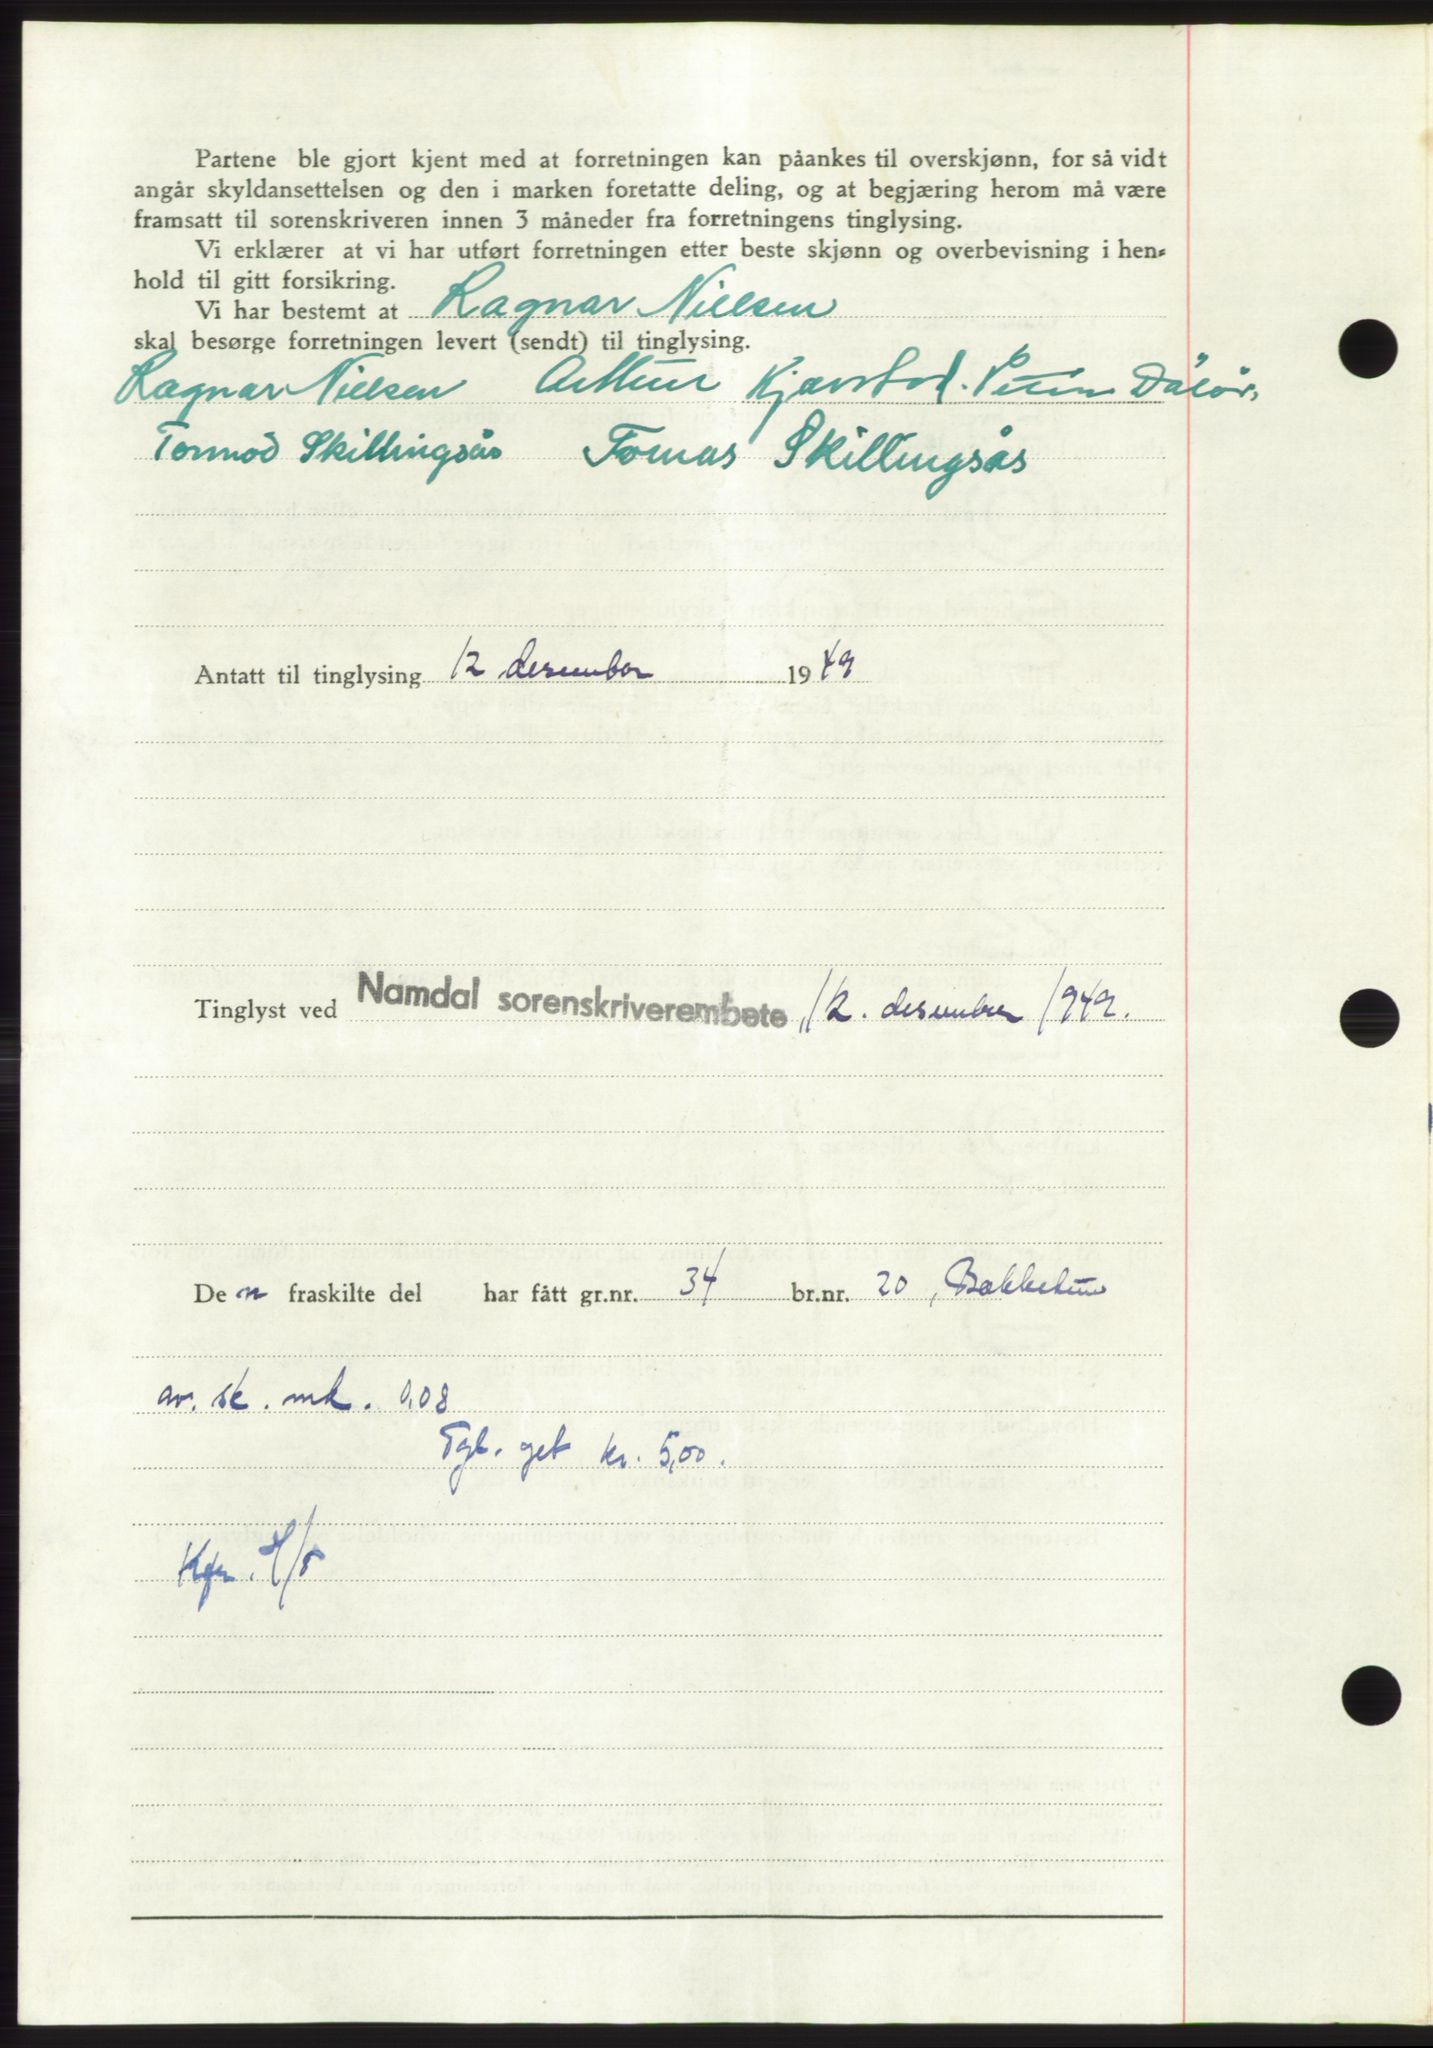 Partene ble gjort kjent med at forretningen kan påankes til overskjønn, for så vidt
angår skyldansettelsen og den i marken foretatte deling, og at begjæring herom må være
framsatt til sorenskriveren innen 3 måneder fra forretningens tinglysing.
Vi erklærer at vi har utført forretningen etter beste skjønn og overbevisning i hen-
hold til gitt forsikring.
Vi har bestemt at Ragnar Nielsen
skal besørge forretningen levert (sendt) til tinglysing.
Ragnar Nielsen Arthur Kjærstad.
Tormod Skillingsås Tomas Skillingsås
Antatt til tinglysing 12 desember 1949
Tinglyst ved Namdal sorenskriverembete, 12. desember 1949.
De n fraskilte del har fått gr.nr. 34 br.nr. 20, Bakketun
av sk. mk. 0,08
Tgl. geb kr. 5,00.